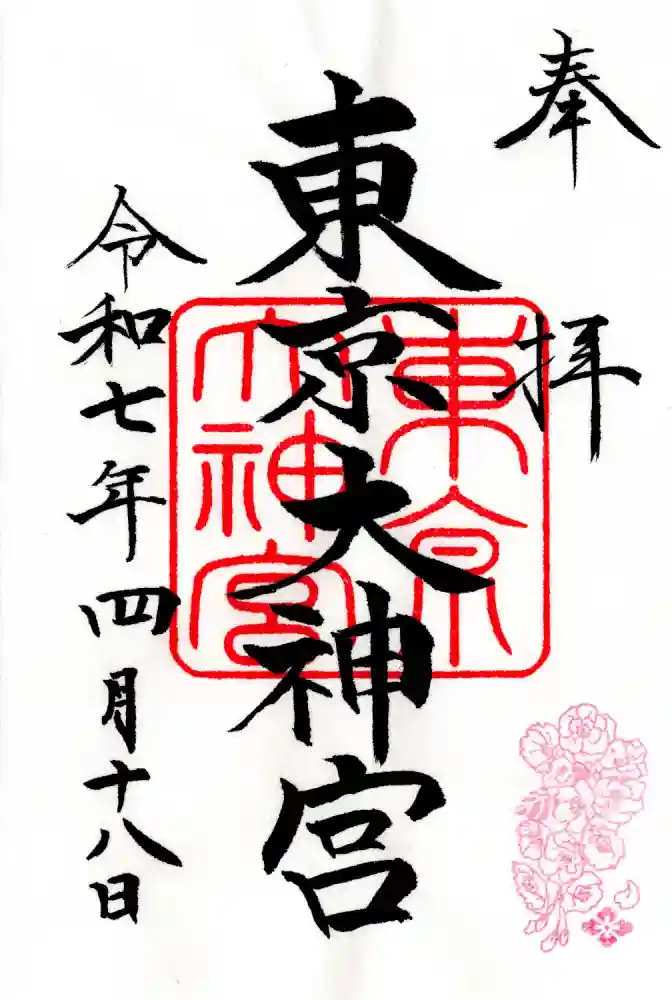 奉拝
東京大神宮
東京
大神宮
令和七年四月十八日